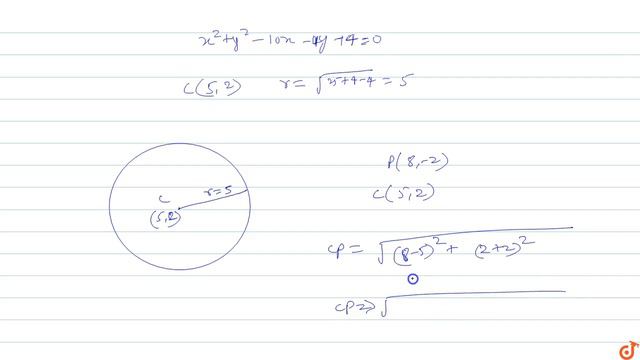 x² + y² - 10x - 4y + 4 = 0
C(5,2) r = √25+4-4 = 5
P(8,-2)
C(5,2)
C
r=5
(5,2)
CP = √(8-5)² + (2+2)²
CP => √
d